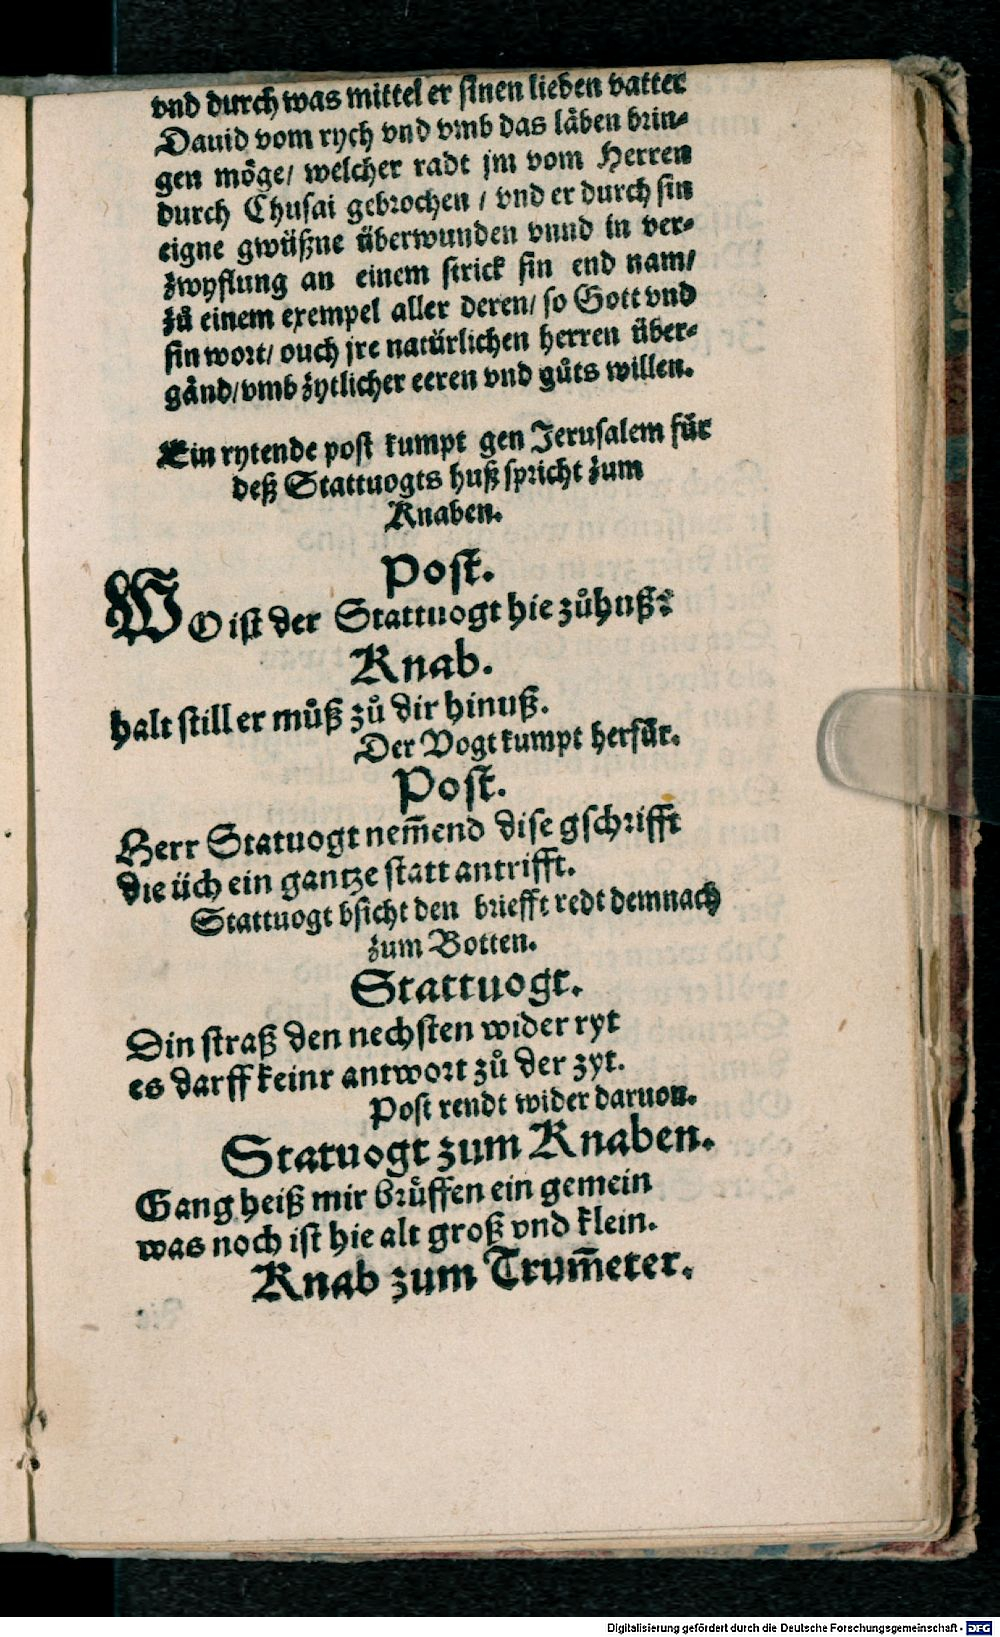 vnd durch was mittel er sinen lieben vatter
Dauid vom rych vnd vmb das låben brin-
gen möge/ welcher radt jm vom Herren
durch Chusai gebrochen / vnd er durch sin
eigne gwüßne überwunden vnnd in ver-
zwyflung an einem strick sin end nam/
zů einem exempel aller deren/ so Gott vnd
sin wort/ ouch jre natürlichen herren über-
gånd/ vmb zytlicher eeren vnd gůts willen.
Ein rytende post kumpt gen Jerusalem für
deß Stattuogts huß spricht zum
Knaben.
Post.
WO ist der Stattuogt hie zůhuß?
Knab.
halt still er můß zů dir hinuß.
Der Vogt kumpt herfür.
Post.
Herr Statuogt nem̃end dise gschrifft
die üch ein gantze statt antrifft.
Stattuogt bsicht den briefft redt demnach
zum Botten.
Stattuogt.
Din straß den nechsten wider ryt
es darff keinr antwort zů der zyt.
Post rendt wider daruon.
Statuogt zum Knaben.
Gang heiß mir brůffen ein gemein
was noch ist hie alt groß vnd klein.
Knab zum Trum̃eter.
Digitalisierung gefördert durch die Deutsche Forschungsgemeinschaft - DFG